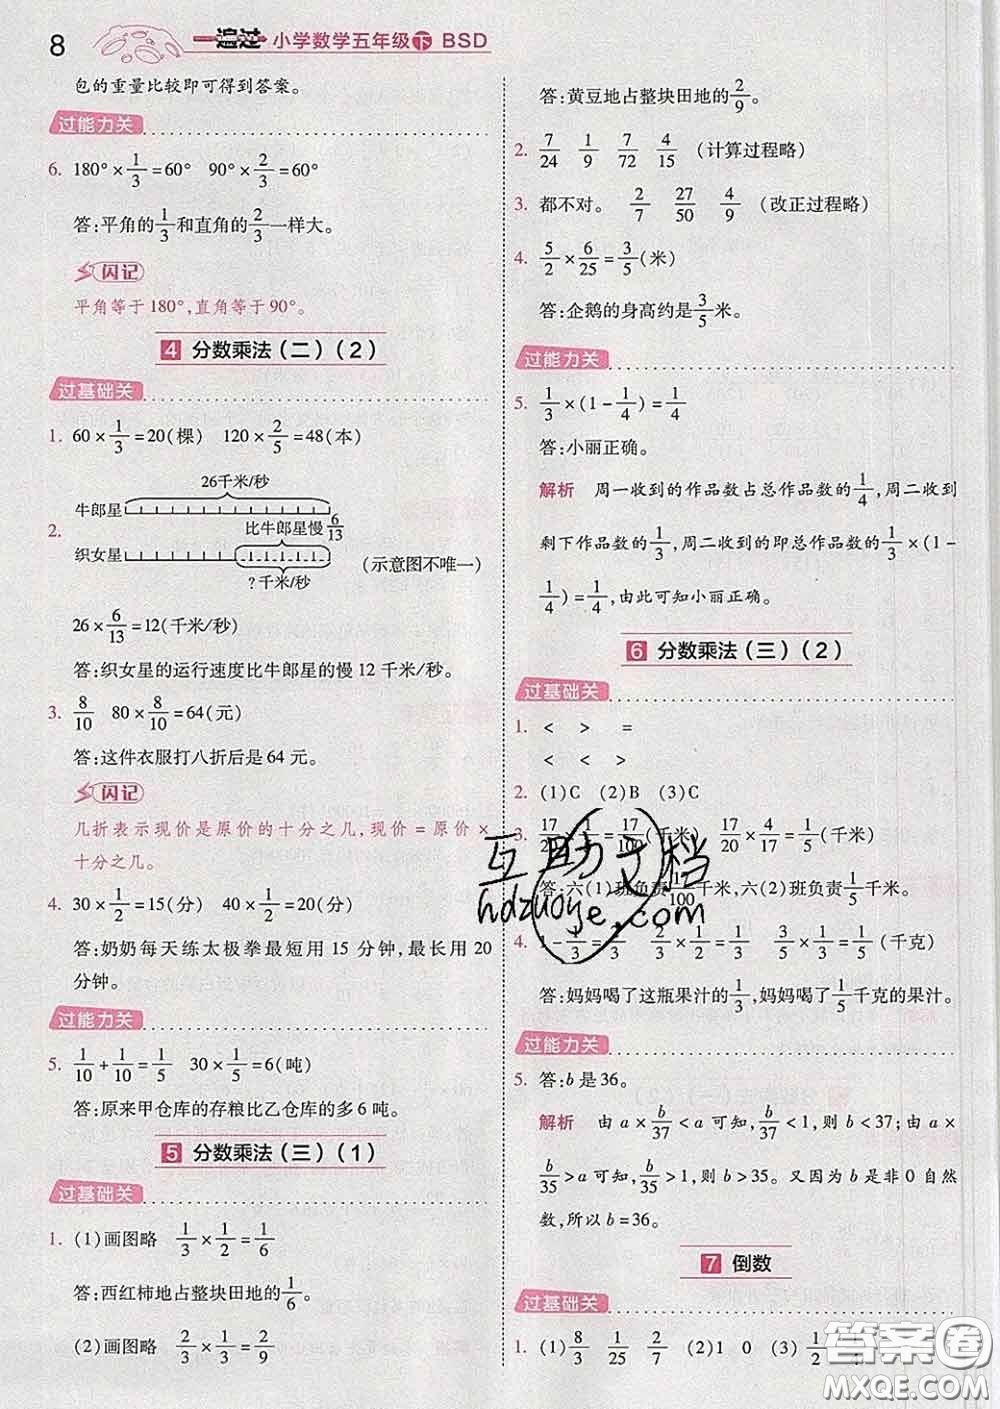 8
一遍过 小学数学五年级下 BSD
包的重量比较即可得到答案。
过能力关
6. 180°×1/3=60° 90°×2/3=60°
答:平角的1/3和直角的2/3一样大。
闪记
平角等于180°,直角等于90°。
4 分数乘法(二)(2)
过基础关
1. 60×1/3=20(棵) 120×2/5=48(本)
26千米/秒
牛郎星
2.
比牛郎星慢6/13
织女星
(示意图不唯一)
?千米/秒
26×6/13=12(千米/秒)
答:织女星的运行速度比牛郎星的慢12千米/秒。
3. 8/10 80×8/10=64(元)
答:这件衣服打八折后是64元。
闪记
几折表示现价是原价的十分之几,现价=原价×
十分之几。
4. 30×1/2=15(分) 40×1/2=20(分)
答:奶奶每天练太极拳最短用15分钟,最长用20
分钟。
过能力关
5. 1/10+1/10=1/5 30×1/5=6(吨)
答:原来甲仓库的存粮比乙仓库的多6吨。
5 分数乘法(三)(1)
过基础关
1. (1)画图略 1/3×1/2=1/6
答:西红柿地占整块田地的1/6。
(2)画图略 2/3×1/3=2/9
答:黄豆地占整块田地的2/9。
2. 7/24 1/9 7/72 4/15 (计算过程略)
3. 都不对。 2/7 27/50 4/9 (改正过程略)
4. 5/2×6/25=3/5(米)
答:企鹅的身高约是3/5米。
过能力关
5. 1/3×(1-1/4)=1/4
答:小丽正确。
解析 周一收到的作品数占总作品数的1/4,周二收到
剩下作品数的1/3,周二收到的即总作品数的1/3×(1-
1/4)=1/4,由此可知小丽正确。
6 分数乘法(三)(2)
过基础关
1. < > =
< < >
2. (1)C (2)B (3)C
3. 17/20×1/5=17/100(千米) 17/20×4/17=1/5(千米)
答:六(1)班负责17/100千米,六(2)班负责1/5千米。
4. 1-1/3=2/3 2/3×1/2=1/3 3/5×1/3=1/5(千克)
答:妈妈喝了这瓶果汁的1/3,妈妈喝了1/5千克的果汁。
过能力关
5. 答:b是36。
解析 由a×b/37<a可知,b/37<1,则b<37;由a×
b/35>a可知,b/35>1,则b>35。又因为b是非0自然
数,所以b=36。
7 倒数
过基础关
1. (1)8/3 1/25 2/7 (2)1 0 (3)1/2
互助文档
hdzuoye.com
答案圈
MXQE.COM